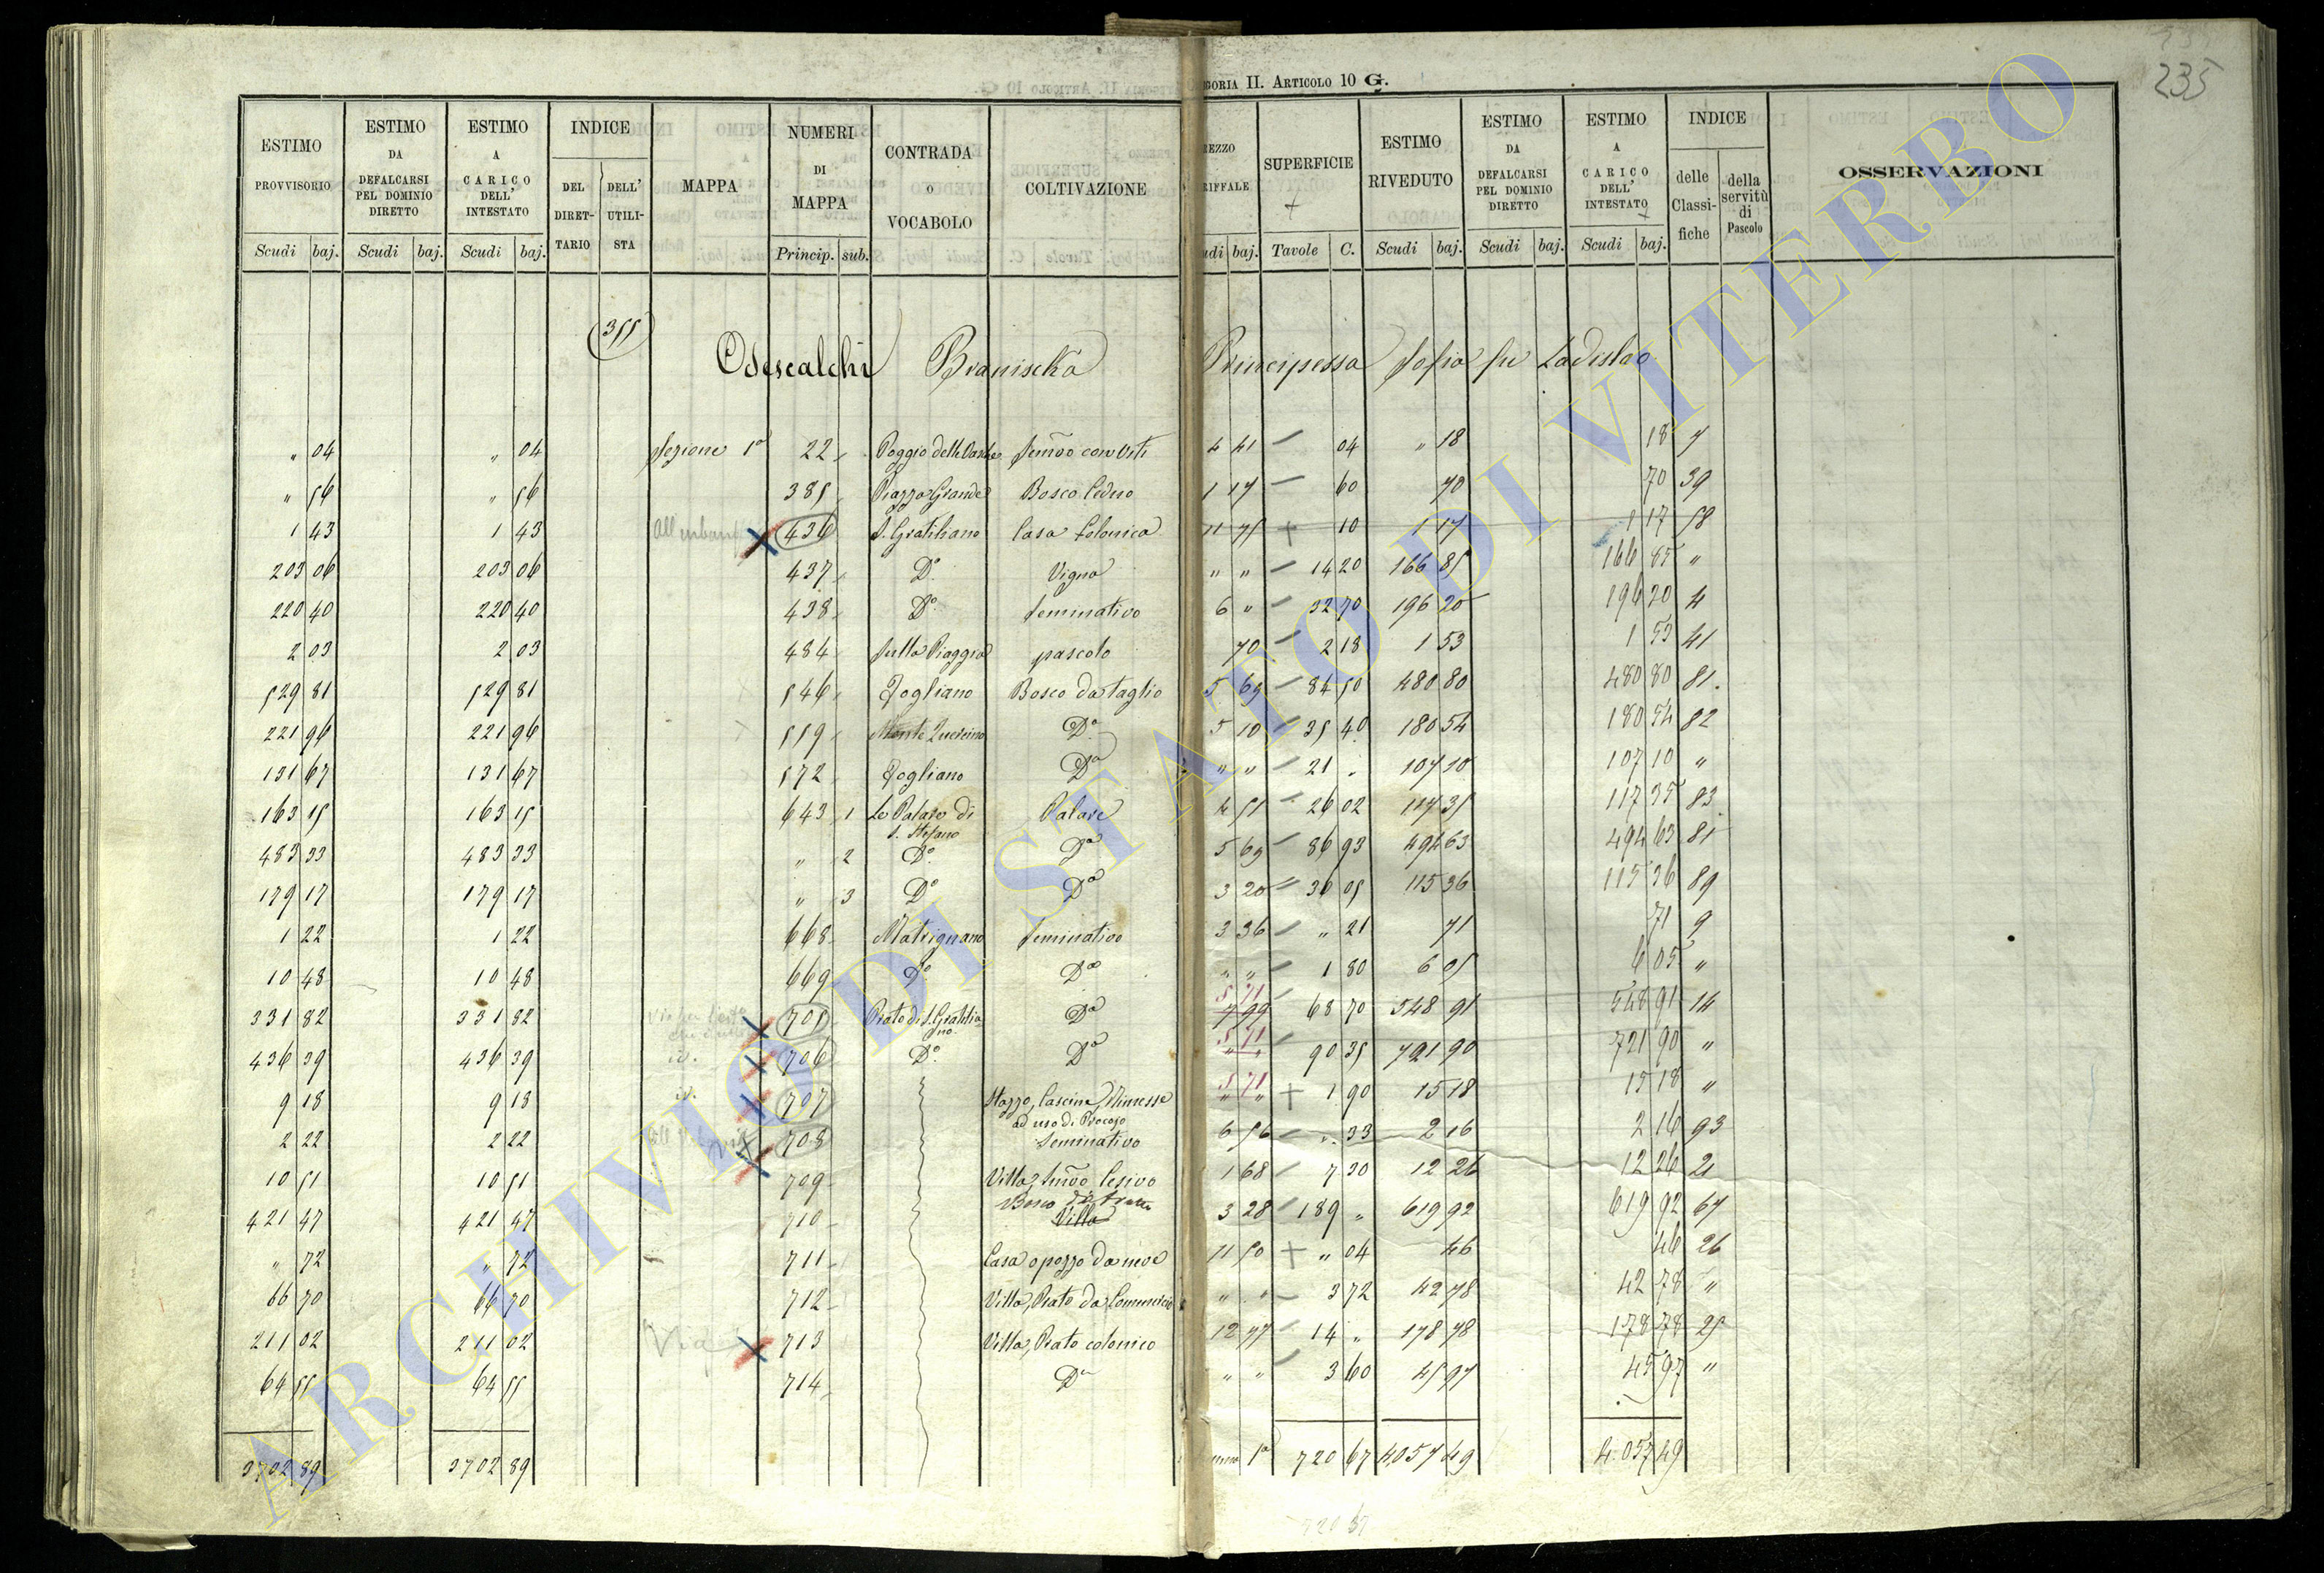 235
GORIA II. ARTICOLO 10 G.
ESTIMO PROVVISORIO
ESTIMO DA DEFALCARSI PEL DOMINIO DIRETTO
ESTIMO A CARICO DELL' INTESTATO
INDICE
DEL DIRET-TARIO
DELL' UTILI-STA
MAPPA
NUMERI DI MAPPA
CONTRADA O VOCABOLO
COLTIVAZIONE
REZZO RIFFALE
SUPERFICIE
ESTIMO RIVEDUTO
ESTIMO DA DEFALCARSI PEL DOMINIO DIRETTO
ESTIMO A CARICO DELL' INTESTATO
INDICE
delle Classi-fiche
della servitù di Pascolo
OSSERVAZIONI
Scudi baj. Scudi baj. Scudi baj. Princip. sub. udi baj. Tavole C. Scudi baj. Scudi baj. Scudi baj.
355
Odescalchi Branischa Principessa Sofia fu Ladislao
„ 04 „ 04 Sezione 1a 22 Poggio delle Semvo con Viti 4 41 04 „ 18 18 7
„ 56 „ 56 385 Piazza Grande Bosco Ceduo 1 17 60 70 70 39
1 43 1 43 All'urbano 436 S. Gratiliano Casa Colonica 11 75 10 1 17 1 17 58
203 06 203 06 437 Do Vigna „ „ 14 20 166 85 166 85 „
220 40 220 40 438 Do Seminativo 6 „ 32 70 196 20 196 20 4
2 03 2 03 484 Sulla Piaggia pascolo 70 2 18 1 53 1 53 41
529 81 529 81 546 Zogliano Bosco da taglio 5 69 84 50 480 80 480 80 81
221 96 221 96 559 Monte Quercino Do 5 10 35 40 180 54 180 54 82
131 67 131 67 572 Zogliano Do „ „ 21 „ 107 10 107 10 „
163 15 163 15 643 1 Le Palare di S. Stefano Palare 4 51 26 02 117 35 117 35 83
483 33 483 33 „ 2 Do Do 5 69 86 93 494 63 494 63 81
179 17 179 17 „ 3 Do Do 3 20 36 05 115 36 115 36 89
1 22 1 22 668 Matrignano Seminativo 3 36 „ 21 71 71 9
10 48 10 48 669 Do Do „ „ 1 80 6 05 6 05 „
331 82 331 82 705 Prato di S. Gratiliano Do 5 71 7 99 68 70 548 91 548 91 14
436 39 436 39 id. 706 Do Do 5 71 „ „ 90 35 721 90 721 90 „
9 18 9 18 id. 707 Stazzo, Cascina, Rimesse ad uso di Procojo 5 71 „ „ 1 90 15 18 15 18 „
2 22 2 22 708 Seminativo 6 56 „ 33 2 16 2 16 93
10 51 10 51 709 Villa, Semvo Cesivo 1 68 7 30 12 26 12 26 21
421 47 421 47 710 Bosco da frutto Villa 3 28 189 „ 619 92 619 92 67
„ 72 „ 72 711 Casa o pozzo da neve 11 50 „ 04 46 46 26
66 70 66 70 712 Villa, Prato da Commercio „ „ 3 72 42 78 42 78 „
211 02 211 02 Via 713 Villa, Prato colonico 12 77 14 „ 178 78 178 78 25
64 55 64 55 714 Do „ „ 3 60 45 97 45 97 „
3702 89 3702 89 1a 720 67 4057 49 4.057 49
720 67
ARCHIVIO DI STATO DI VITERBO